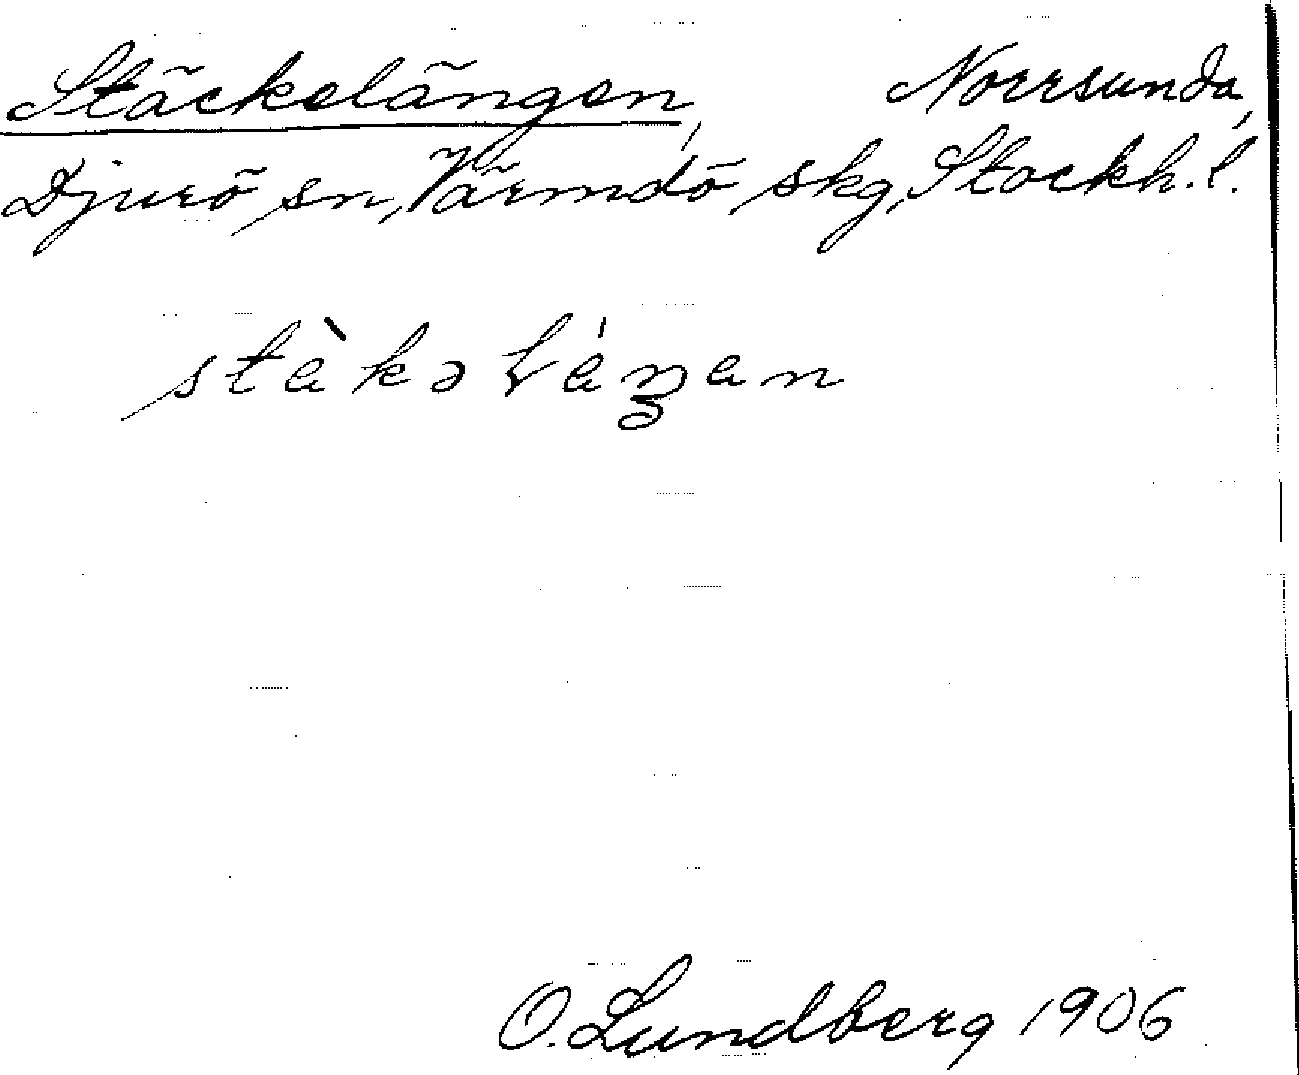 Stäckelängen, Norrsunda,
Djurö sn, Värmdö skg, Stockh. l.
stàkəláŋan
O. Lundberg 1906